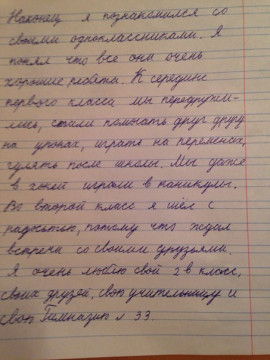 Наконец я познакомился со
своими одноклассниками. Я
понял что все они очень
хорошие ребята. К середине
первого класса мы передружи-
лись, стали помогать друг другу
на уроках, играть на переменах,
гулять после школы. Мы даже
в хокей играли в каникулы.
Во второй класс я шёл с
радостью, потому что ждал
встречи со своими друзьями.
Я очень люблю свой 2 в класс,
своих друзей, свою учительницу и
свою Гимназию № 33.